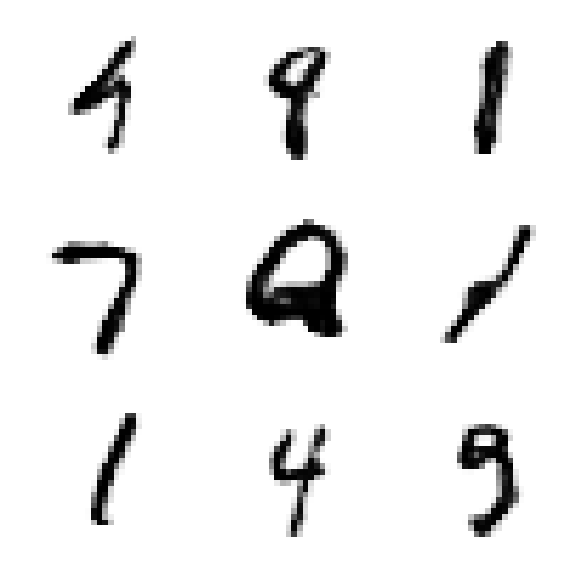 4 9 1
7 2 1
1 4 9